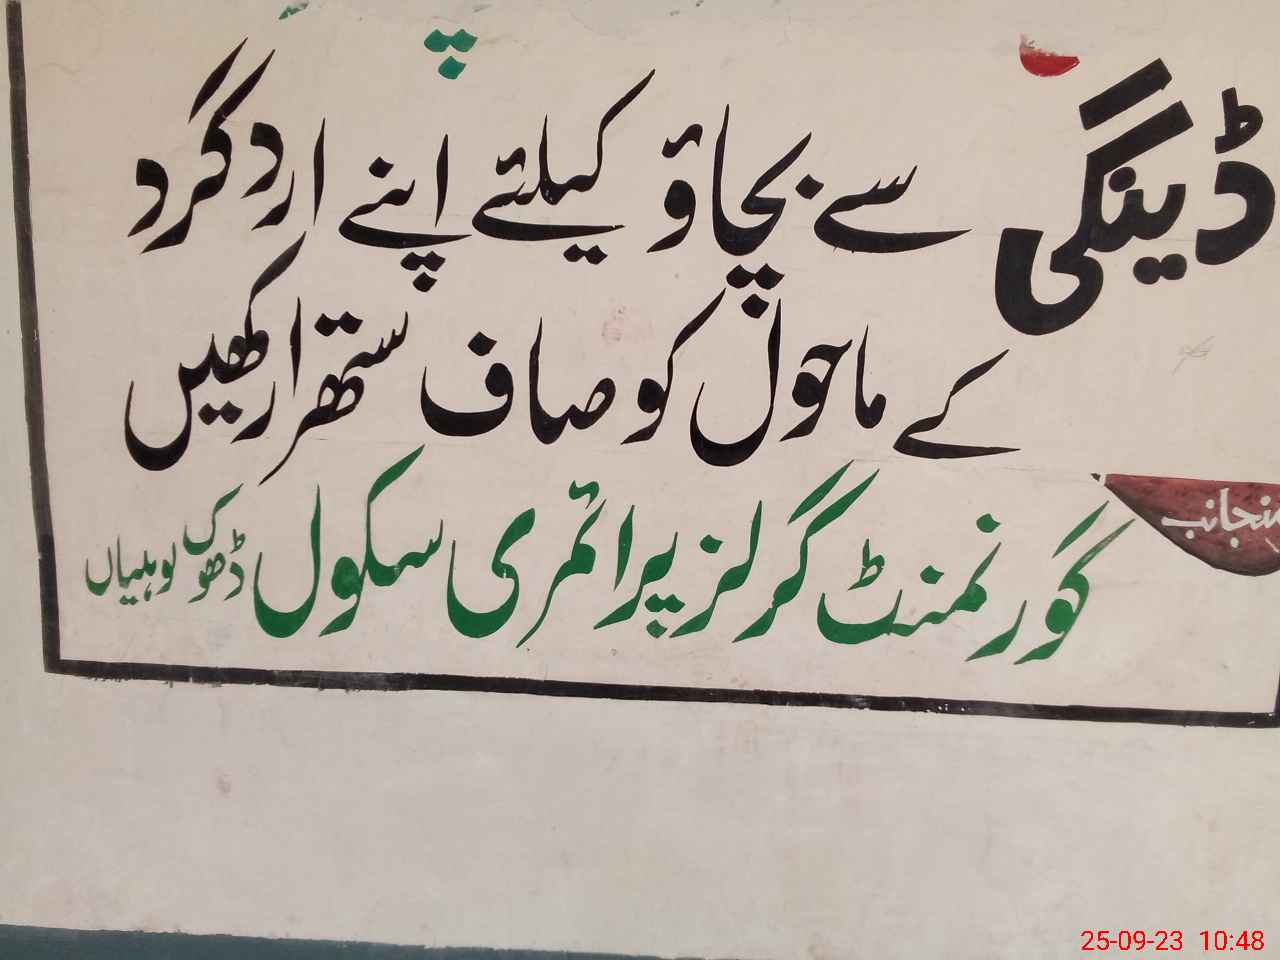 ڈینگی سے بچاؤ کیلئے اپنے اردگرد
کے ماحول کو صاف ستھرا رکھیں
منجانب
گورنمنٹ گرلز پرائمری سکول ڈھوک لوہلیاں
25-09-23 10:48